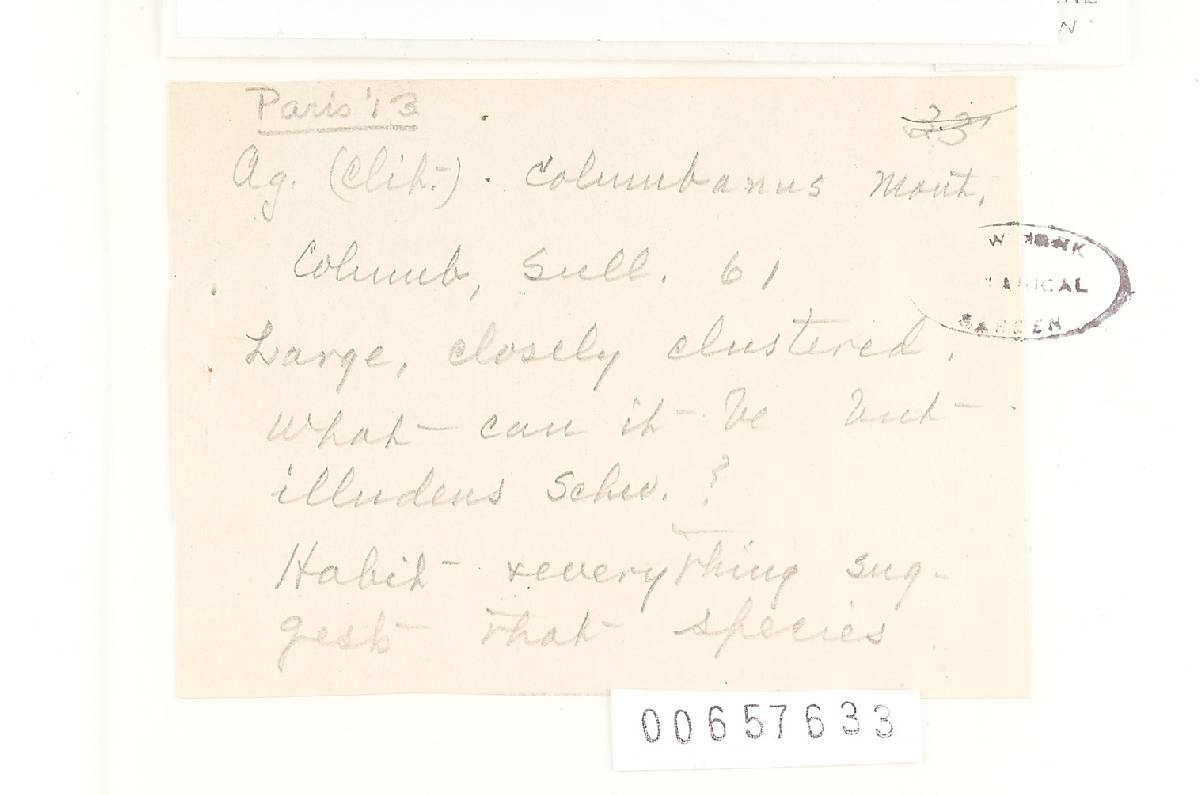 N
Paris '13
23
Ag. (Clit.). Columbanus Mont.
Columb, Sull. 61
W YORK
TANICAL
GARDEN
Large, closely clustered.
What can it be but
illudens Schw. ?
Habit & everything sug-
gests that species
00657633